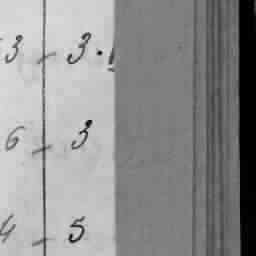 3 - 3.
6 - 3
4 - 5